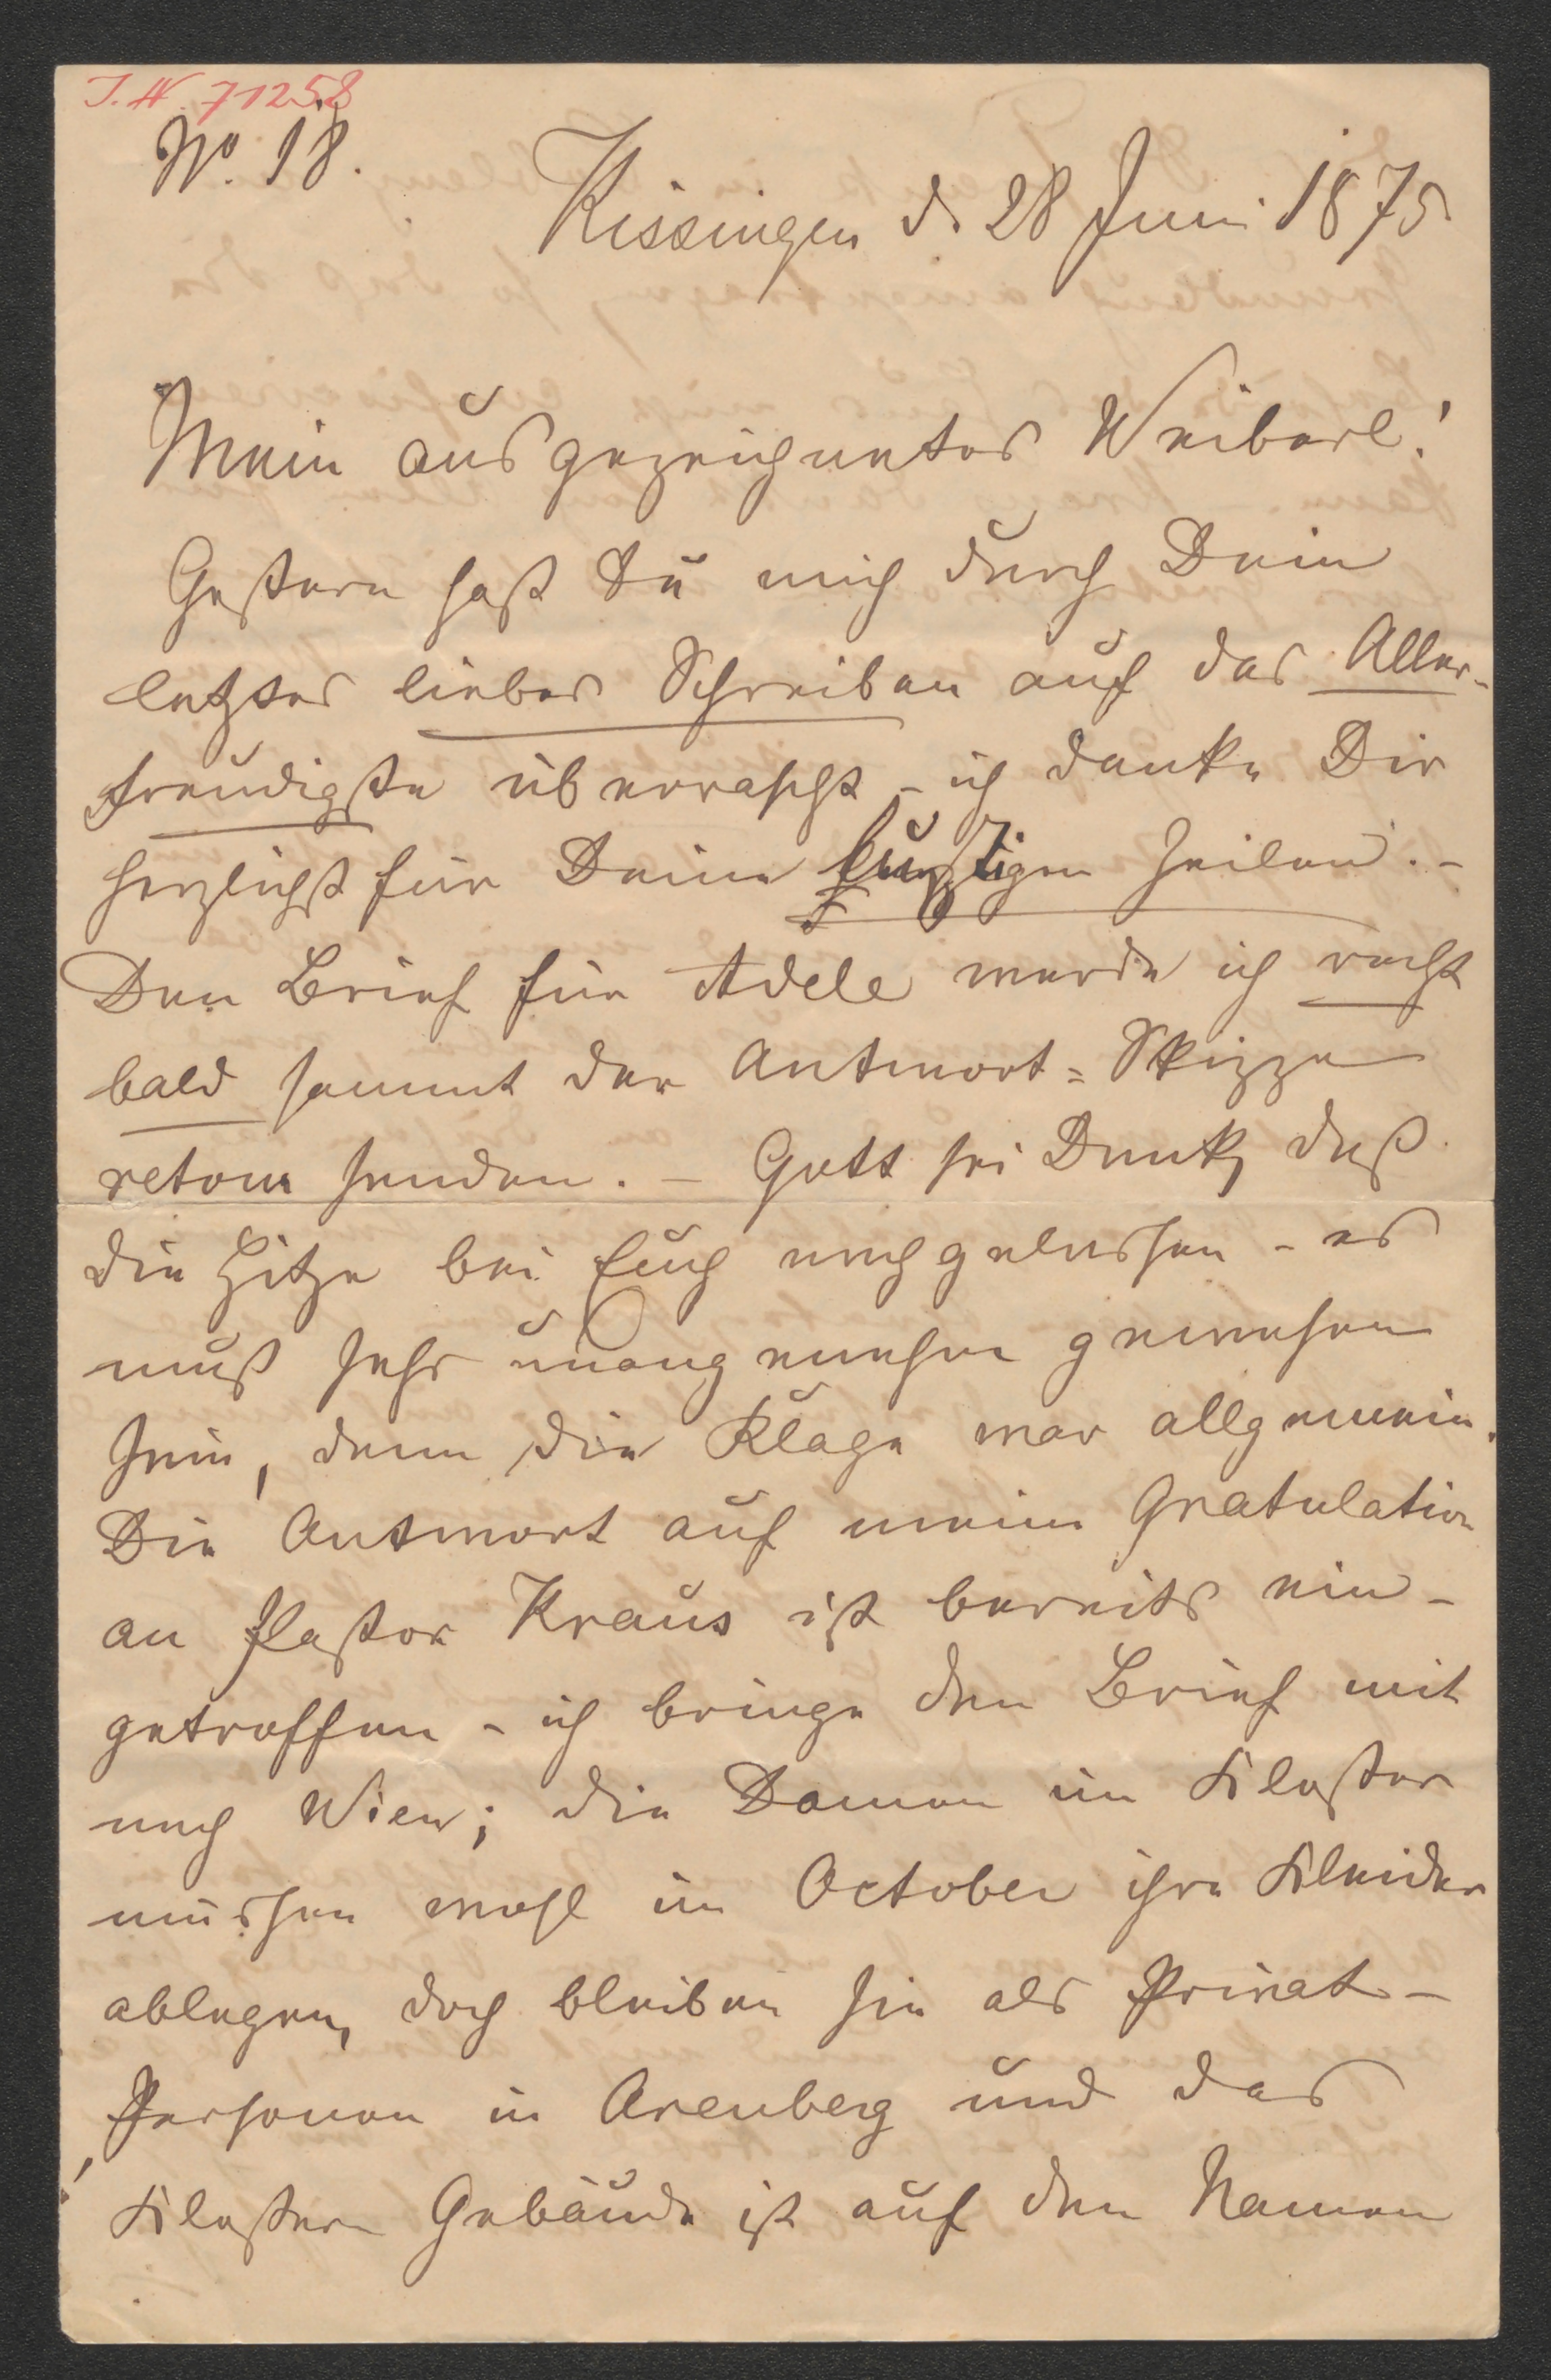 J. N. 71258
No. 18.
Kissingen d. 28 Juni 1875
Mein ausgezeichnetes Weiberl!
Gestern hast Du mich durch Dein
letztes liebes Schreiben auf das Aller-
freudigste überrascht – ich danke Dir
herzlichst für Deine Zeilen. –
Den Brief für Adele werde ich recht
bald sammt der Antwort=Skizze
retour senden. – Gott sei Dank, daß
die Hitze bei Euch nachgelassen – es
muß sehr unangenehm gewesen
sein, denn die Klage war allgemein.
Die Antwort auf meine Gratulation
an Pastor Kraus ist bereits ein-
getroffen – ich bringe den Brief mit
nach Wien; die Damen im Kloster
müssen wohl im October ihre Kleider
ablegen, doch bleiben sie als Privat-
Personen in Arenberg und das
Kloster Gebäude ist auf den Namen